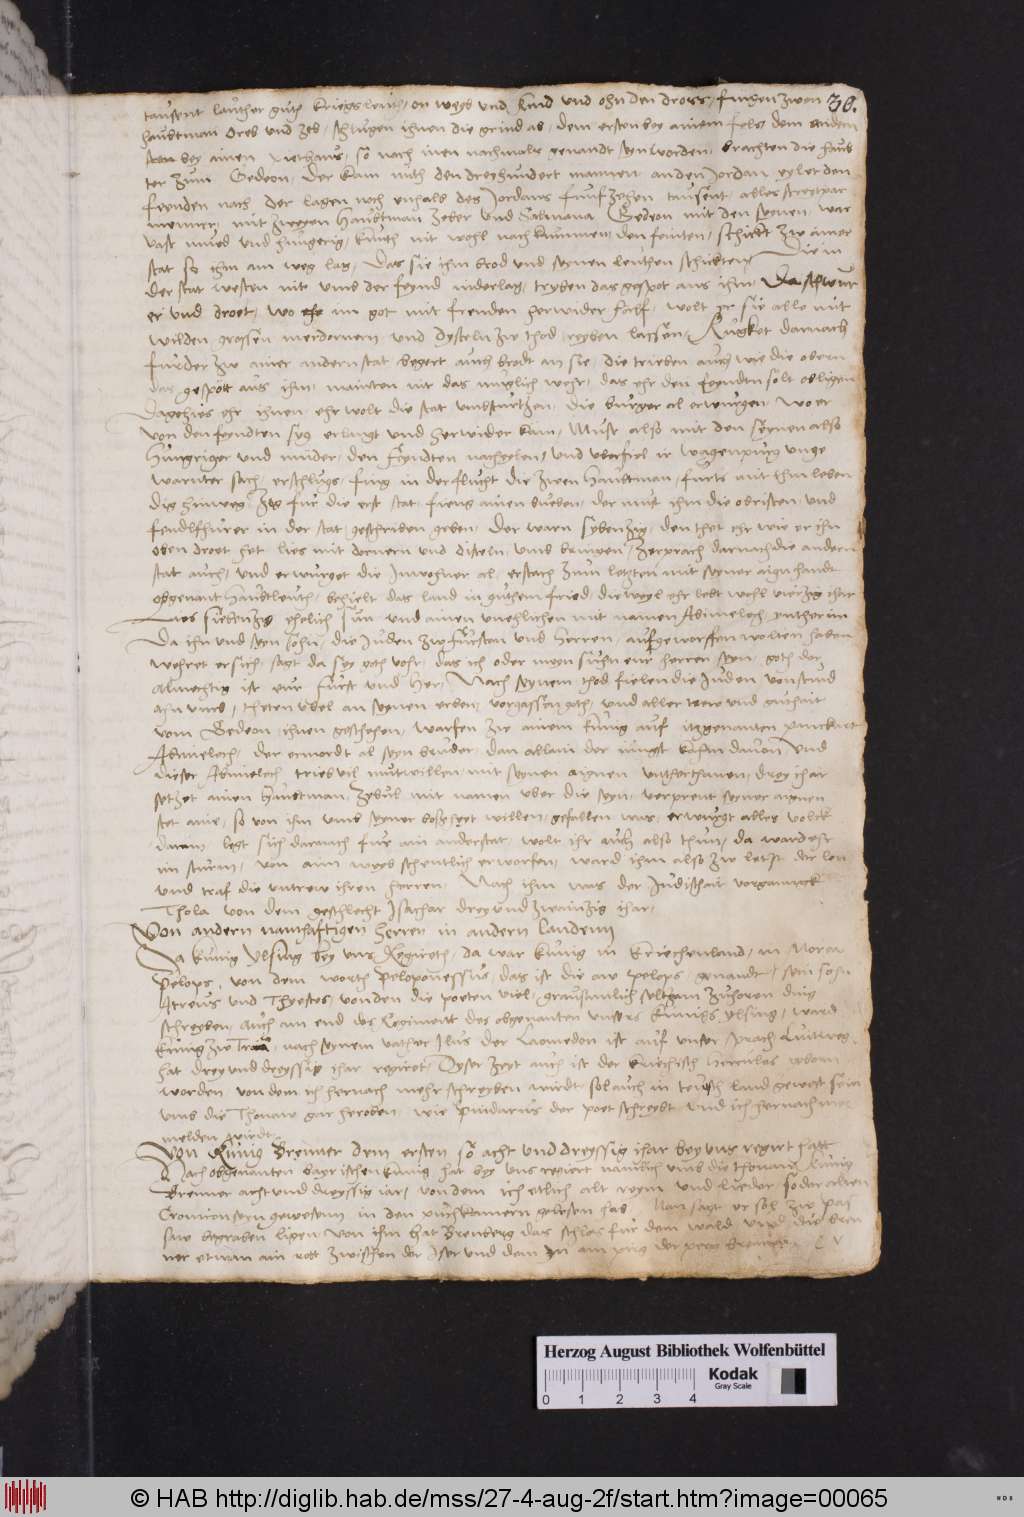 30.
tausent lauther guth kriegsleuth, on weyb und kind und ohn den dross, fiengen zwen
haubtman Oreb und Zeb, schlugen ihnen die grind ab, dem ersten bey ainem fels dem andern
bey ainen, so nach inen nachmals genandt seyn worden, brachten die heub
ter zum Gedeon. Der kam mith den dreyhundert mannen an den Jordan, eylet den
feynden nach, der lagen noch enhalb des Jordans funfzehen tausent, alles streytpar
menner, mit zweyen haubtman Zebee und Salmana. Gedeon mit den seynen, war
vast mued und hungerig, kunth nit wohl nachkummen den feinten, schickt zw ainer
stat so ihm am weg lag, das sie ihm brod und seynen leuthen schickten. Die in
der stat westen nit umb der feynd niderlag, tryben das gespot aus ihm. Da schwur
er und droet, wo im got mit freuden herwider hulf, wolt er sie alle mit
wilden grossen merdornern und dysteln zw thod reyben lassen. Rugket darnach
furder zw ainer andern stat, begert auch brodt an sie, die trieben auch wie die obern
das gespött aus ihm, mainten nit das muglich wehr, das ehr den feyndten solt obligen
Da gehies ehr ihnen, ehr wolt die stat umbsturtzen, die burger al erwurgen, wo er
von den feyndten syg erlangt und herwider kam. Must also mit den seynen also
hungriger und muder, den feyndten nachzelen, und uberfiel ir wagenpurg unge
warnter sach, erschlugs, fing in der flucht die zwen haubtman, furts mit ihm leben
dig hinweg. Zog fur die erst stat, fieng ainen bueben, der must ihm die obristen und
fendlfhurer in der stat geschriben geben. Der warn sybenzig, den thet ehr wie er ihn
oben droet het, lies mit dornern und disteln umb bringen, zerprach darnach die andern
stat auch, und erwurget die Inwohner al, erstach zum letzten mit seyner aigen handt
obgenant haubtleuth, behielt das land in guthem fried, die weyl ehr lebt wohl vierzig ihar
Lies siebenzig ehelich sun und ainen unehlichen mit namen Abimelech
Da ihn und seyn söhn, die Juden zw fürsten und herren, aufgeworffen wolten haben
wehret er sich, sagt da sey goth vohr, das ich oder meyn suhn eur herren seyn, goth der
almechtig ist eur fürst und her. Nach seynem thod fielen die Juden von stund
ahn umb, theten ubel an seynen erben, vergassen goth, und aller trew und guthait
vom Gedeon ihnen geschehen, warfen zw ainem kunig auf itzgenanten
Abimelech, der ermordt al seyn bruder, dan allain der iungst kham davon. Und
dieser Abimelech trieb vil mutwillen mit seynen aignen unterthanen, drey ihar
setzet ainen haubtman Zebul mit namen uber die seyn, verprent seyner aignen
stet aine, so von ihm umb seyner bosheyt willen gefallen war, erwurgt alles volck
darin, legt sich darnach fur ain ander stat, wolt ihr auch also thun, da ward ehr
im sturm, von aim weyb schentlich erworfen, ward ihm also zw letzt der lon
und traf die untrew ihren herren. Nach ihm was der Judischait vorganngk
Thola von dem geschlecht Isachar drey und zwainzig ihar.
Von andern namhaftigen herren in andern landenn
Da kunig Ylsing bey uns Regireth, da war kunig in kriechenland, in Morea
Pelops, von dem worth Peloponessus, das ist die aw pelops genandt, sein söhn
Atreus und Thyestes, von den die poeten viel, graussamlich seltzam zuhoren ding
schreyben, auch am end des Regiments des obgenanten unsers kunigs ylsing, ward
kunig zw Troia, nach seynem vather Ilus der Laomedon ist auf unser sprach Lutweg
hat drey und dreyssig ihar regiret. Dyser zeyt auch ist der kriechisch Hercules geborn
worden, von dem ich hernach mehr schreyben wirdt, sol auch in teutsch land gewest sein
umb die Thonaw gar heroben, wie pindarus der poet schreybt und ich hernach mer
melden wirdt
Von kunig Brenner dem ersten so acht und dreyssig ihar bey uns regirt hatt
Nach obgenanten bayrischen kunig hat bey uns regirt nemlich umb die thonaw, kunig
Brenner acht und dreyssig iar, von dem ich etlich alt reym und lieder so der alten
Cronicen seyn gewesenn in den puechkamern gelesen hab. Man sagt er soll zw pas
saw begraben ligen. Von ihm hat Brenberg das schlos für dem wald und die bren
ner etwan ain rott zwischen der Iser und dem In am pirg der perg brenner
Herzog August Bibliothek Wolfenbüttel
Kodak
Gray Scale
0 1 2 3 4
© HAB http://diglib.hab.de/mss/27-4-aug-2f/start.htm?image=00065